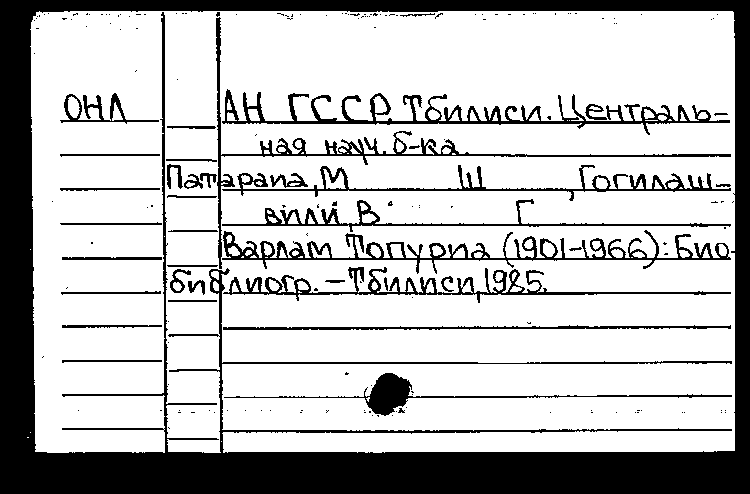 ОНЛ АН ГССР. Тбилиси. Централь-
ная науч. б-ка.
Патарапа, М Ш , Гогилаш-
вили, В Г
Варлам Топурпа (1901-1966): Био-
библиогр. - Тбилиси, 1985.